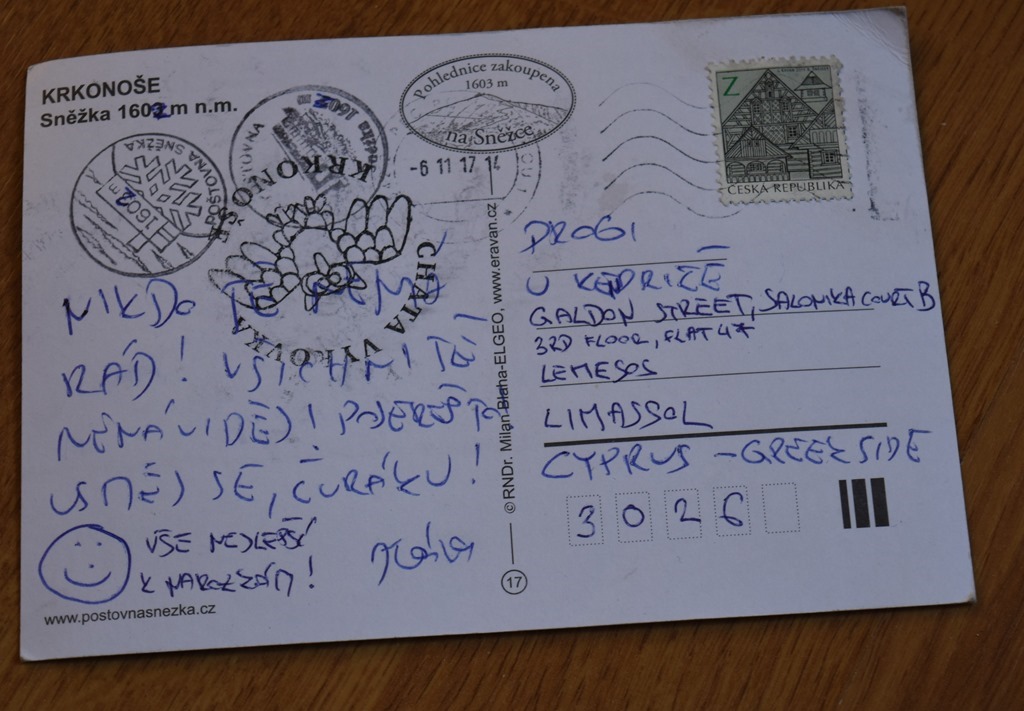 KRKONOŠE
Sněžka 1602 m n.m.
POŠTOVNA SNĚŽKA
1602 m
POŠTOVNA
1602 m
Pohlednice zakoupena
1603 m
na Sněžce
-6 11 17 14
KRKONOŠE
CHATA VÝROVKA
Z
ČESKÁ REPUBLIKA
NIKDO TĚ NEMÁ
RÁD! VŠICHNI TĚ
NENÁVIDĚJ! POSEREŠ TO
USMĚJ SE, ČURÁKU!
VŠE NEJLEPŠÍ
K NAROZZÁM!
www.postovnasnezka.cz
© RNDr. Milan Blaha-ELGEO, www.eravan.cz
17
DROGI
U KEDRIŽE
GALDON STREET, SALONIKA COURT B
3RD FLOOR, FLAT 47
LEMESOS
LIMASSOL
CYPRUS - GREEK SIDE
3026